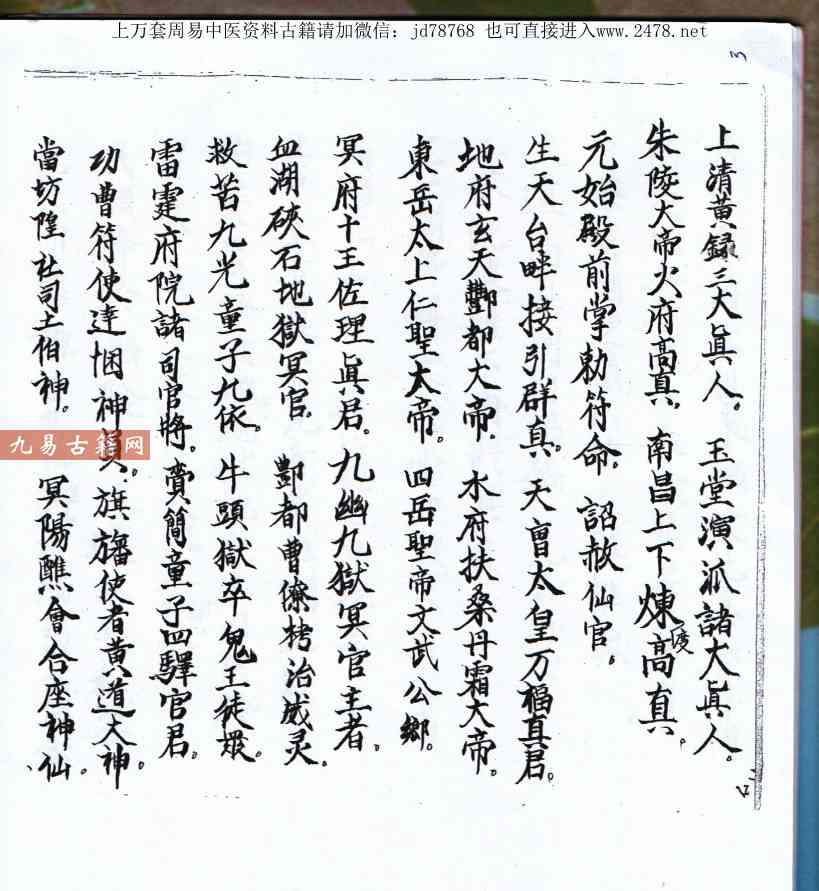 上万套周易中医资料古籍请加微信：jd78768 也可直接进入www.2478.net
3
上清黄録三大眞人。玉堂演泒諸大眞人。
朱陵大帝火府高真。南昌上下煉度高真。
元始殿前掌勅符命。詔赦仙官。
生天台畔接引群真。天曹太皇万福真君。
地府玄天酆都大帝。水府扶桑丹霜大帝。
東岳太上仁聖大帝。四岳聖帝文武公鄉。
冥府十王佐理眞君。九幽九獄冥官主者。
血湖硤石地獄冥官。酆都曹僚栲治威灵。
救苦九光童子九依。牛頭獄卒鬼王徒衆。
雷霆府院諸司官將。賫簡童子四驛官君。
功曹符使達悃神員。旗旛使者黄道大神。
當坊隍社司土伯神。冥陽醮會合座神仙。
九易古籍网